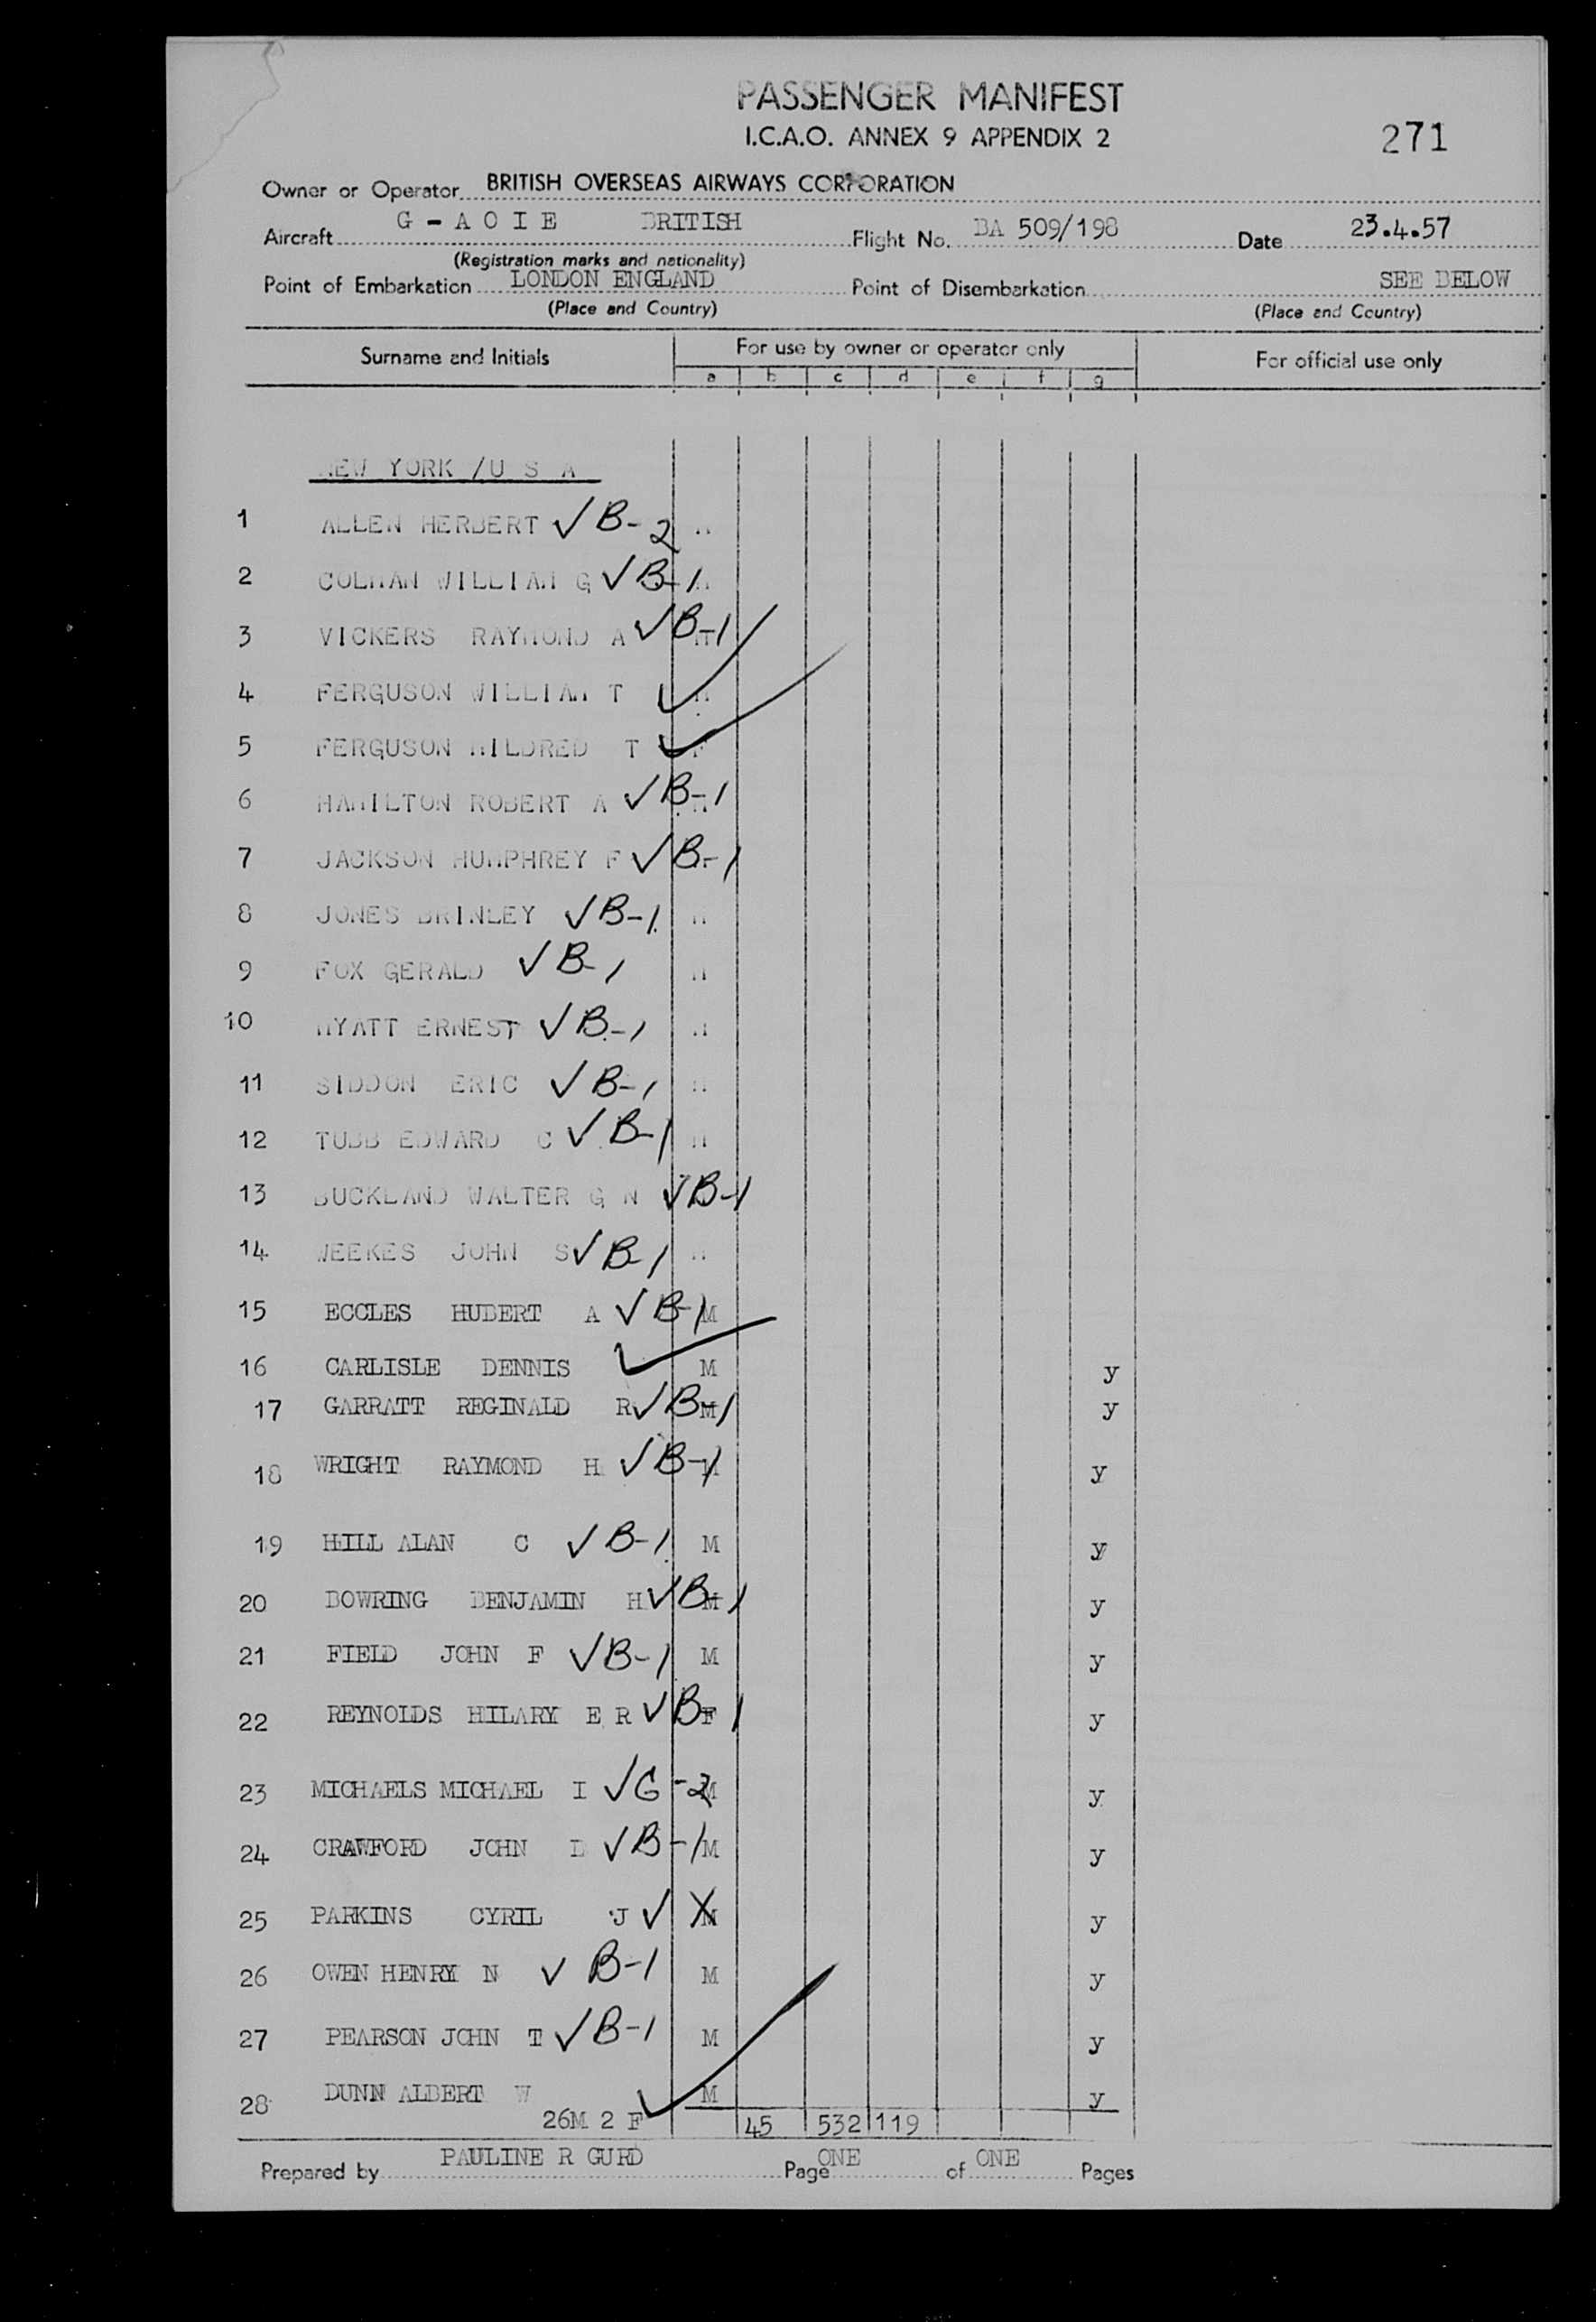 PASSENGER MANIFEST
I.C.A.O. ANNEX 9 APPENDIX 2
271
Owner or Operator BRITISH OVERSEAS AIRWAYS CORPORATION
Aircraft G - A O I E BRITISH Flight No. BA 509/198 Date 23.4.57
(Registration marks and nationality)
Point of Embarkation LONDON ENGLAND Point of Disembarkation SEE BELOW
(Place and Country) (Place and Country)
Surname and Initials For use by owner or operator only For official use only
a b c d e f g
NEW YORK /U S A
1 ALLEN HERBERT ✓ B-2 M
2 COLMAN WILLIAM G ✓ B-1 M
3 VICKERS RAYMOND A ✓ B-1 M
4 FERGUSON WILLIAM T ✓ M
5 FERGUSON MILDRED T ✓ F
6 HAMILTON ROBERT A ✓ B-1 M
7 JACKSON HUMPHREY F ✓ B-1
8 JONES BRINLEY ✓ B-1 M
9 FOX GERALD ✓ B-1 M
10 HYATT ERNEST ✓ B-1 M
11 SIDDON ERIC ✓ B-1 M
12 TUBB EDWARD C ✓ B-1 M
13 BUCKLAND WALTER G N ✓ B-1
14 WEEKES JOHN S ✓ B-1 M
15 ECCLES HUBERT A ✓ B-1 M
16 CARLISLE DENNIS ✓ M y
17 GARRATT REGINALD R ✓ B-1 M y
18 WRIGHT RAYMOND H ✓ B-1 M y
19 HILL ALAN C ✓ B-1 M y
20 BOWRING BENJAMIN H ✓ B-1 M y
21 FIELD JOHN F ✓ B-1 M y
22 REYNOLDS HILARY E R ✓ B-1 F y
23 MICHAELS MICHAEL I ✓ G-2 M y
24 CRAWFORD JOHN D ✓ B-1 M y
25 PARKINS CYRIL J ✓ X M y
26 OWEN HENRY N ✓ B-1 M y
27 PEARSON JOHN T ✓ B-1 M y
28 DUNN ALBERT W ✓ M y
26M 2 F 45 532 119
Prepared by PAULINE R GURD Page ONE of ONE Pages